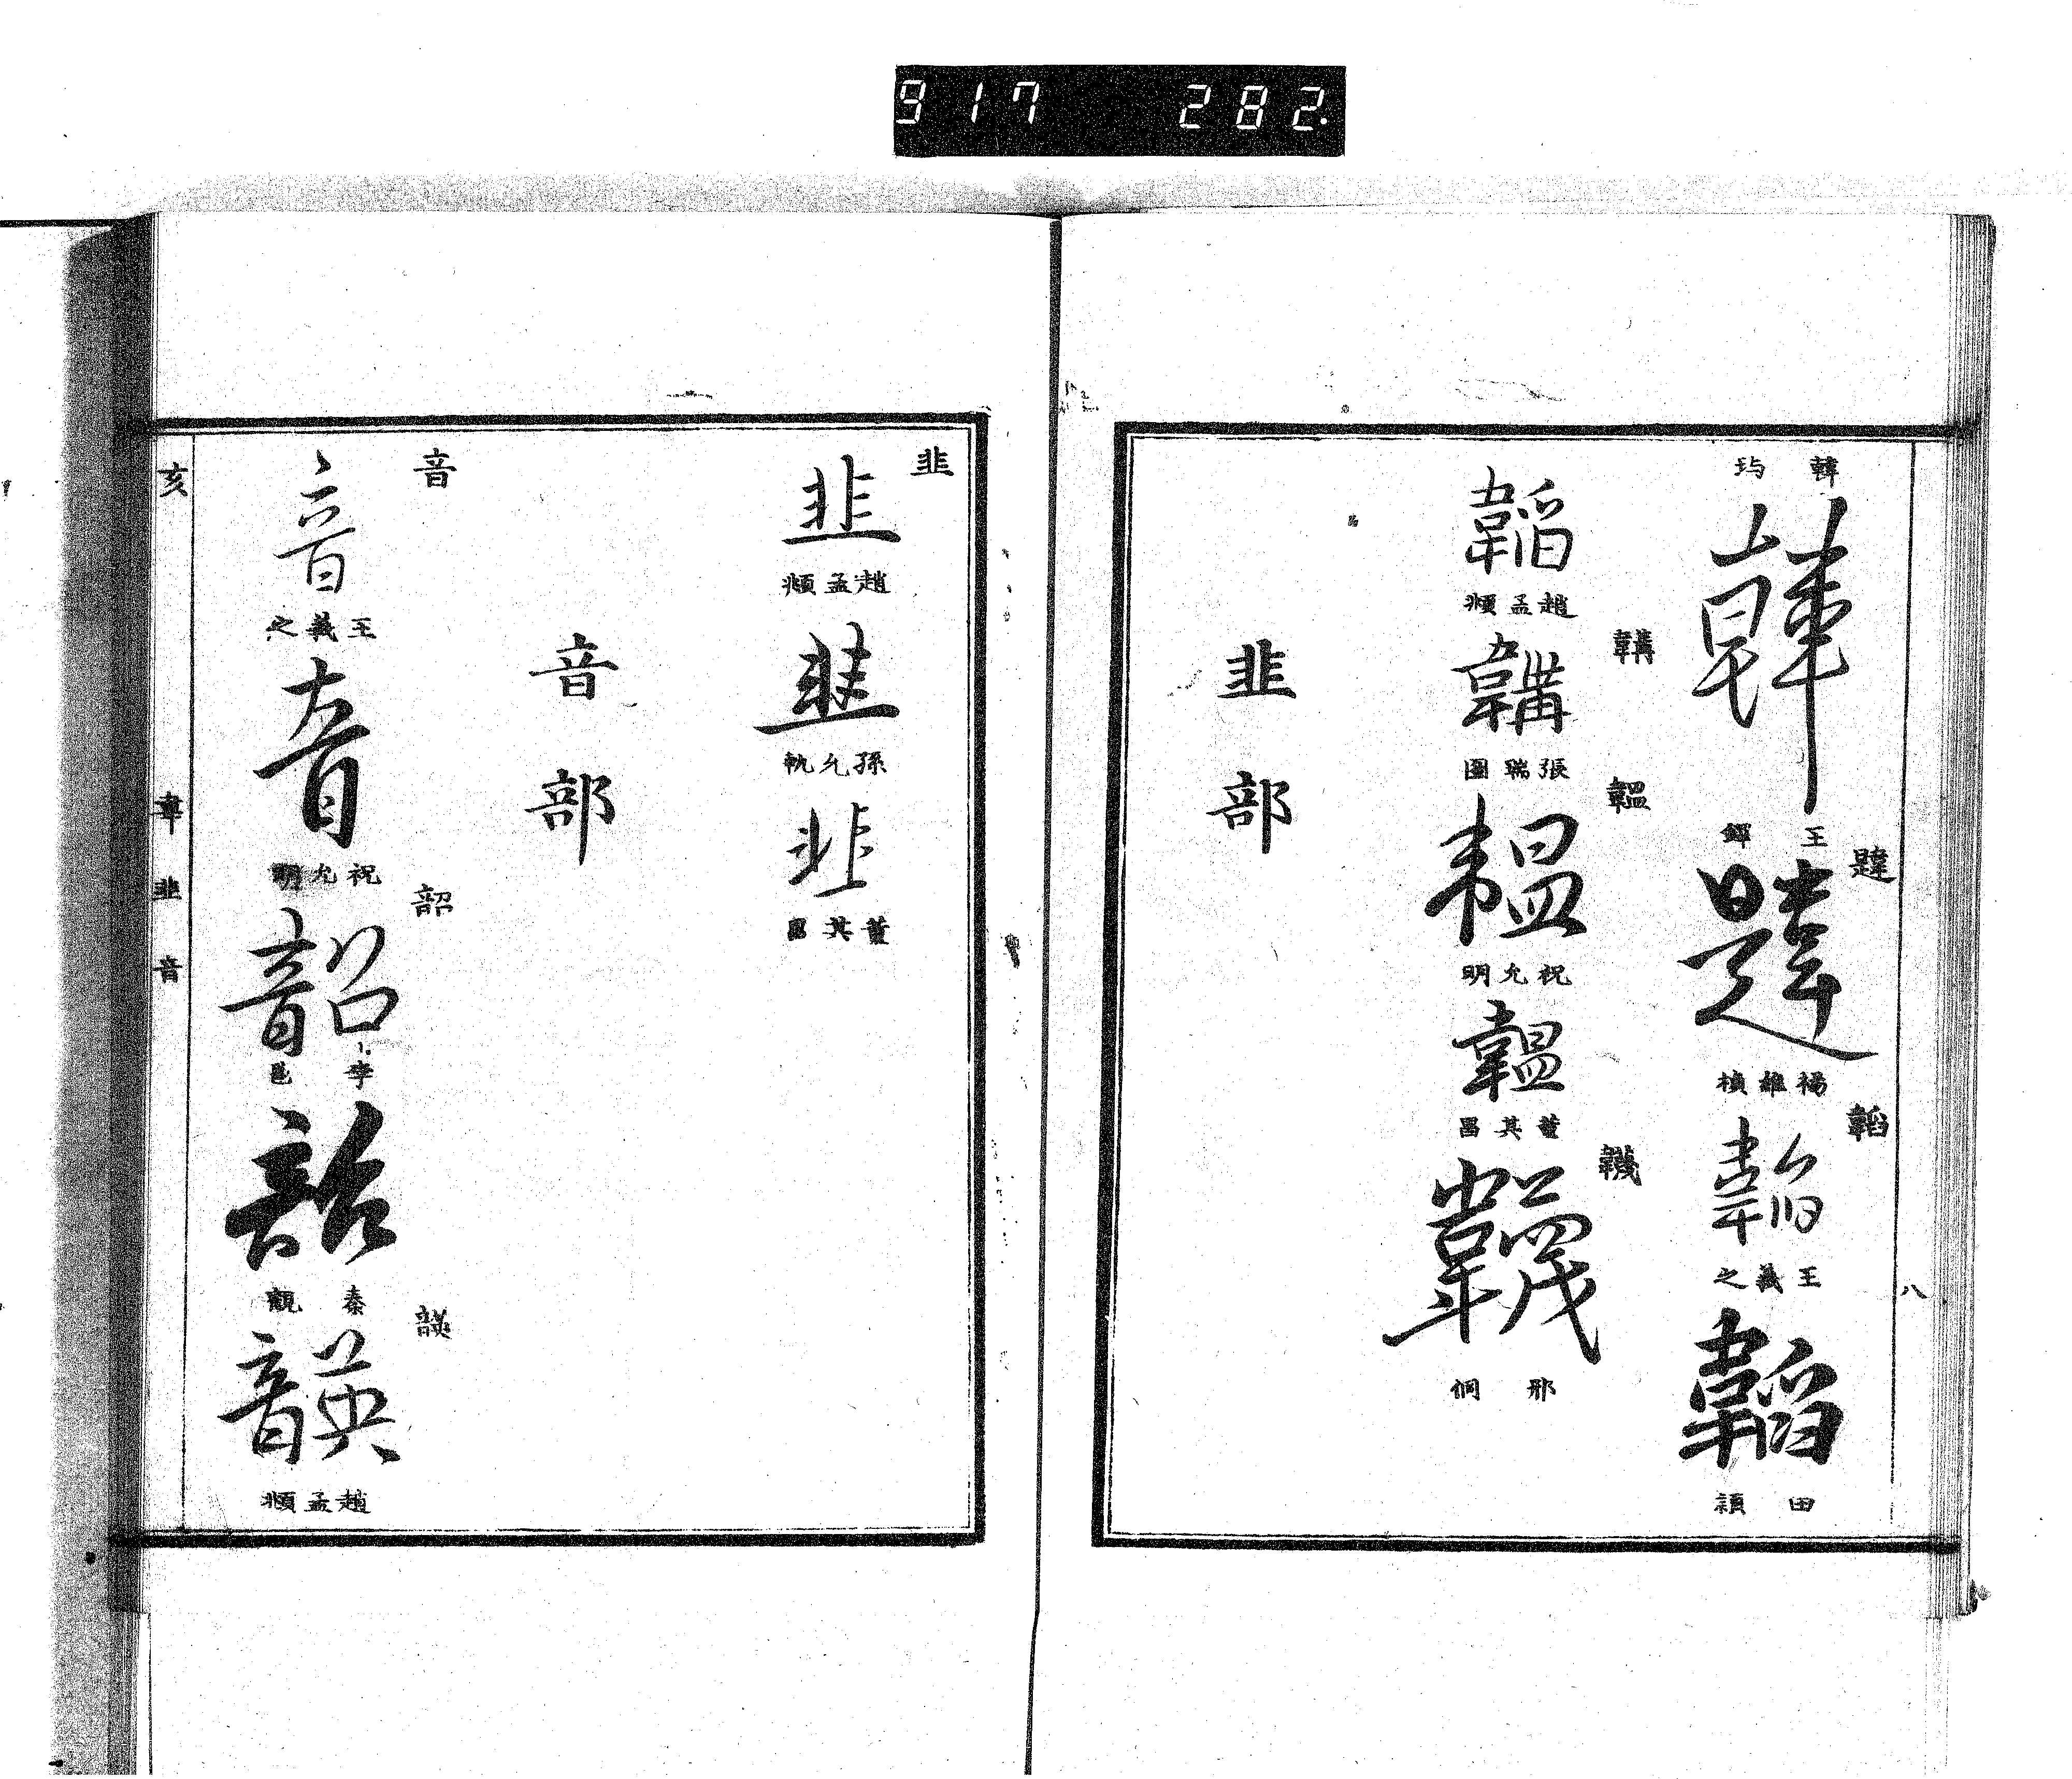 917 282.
韓 玙
韓
王 鐸
韙
韙
楊維楨
韜
韜
王羲之
韜
田 頵
八
韜
趙孟頫
韝
韝
張瑞圖
韞
韞
祝允明
韞
董其昌
韈
韈
邢 侗
韭部
韭
韭
趙孟頫
韭
孫允執
韭
董其昌
音部
音
音
王羲之
音
祝允明
韶
韶
李 邕
韶
秦 觀
韺
韺
趙孟頫
亥
韋 韭 音